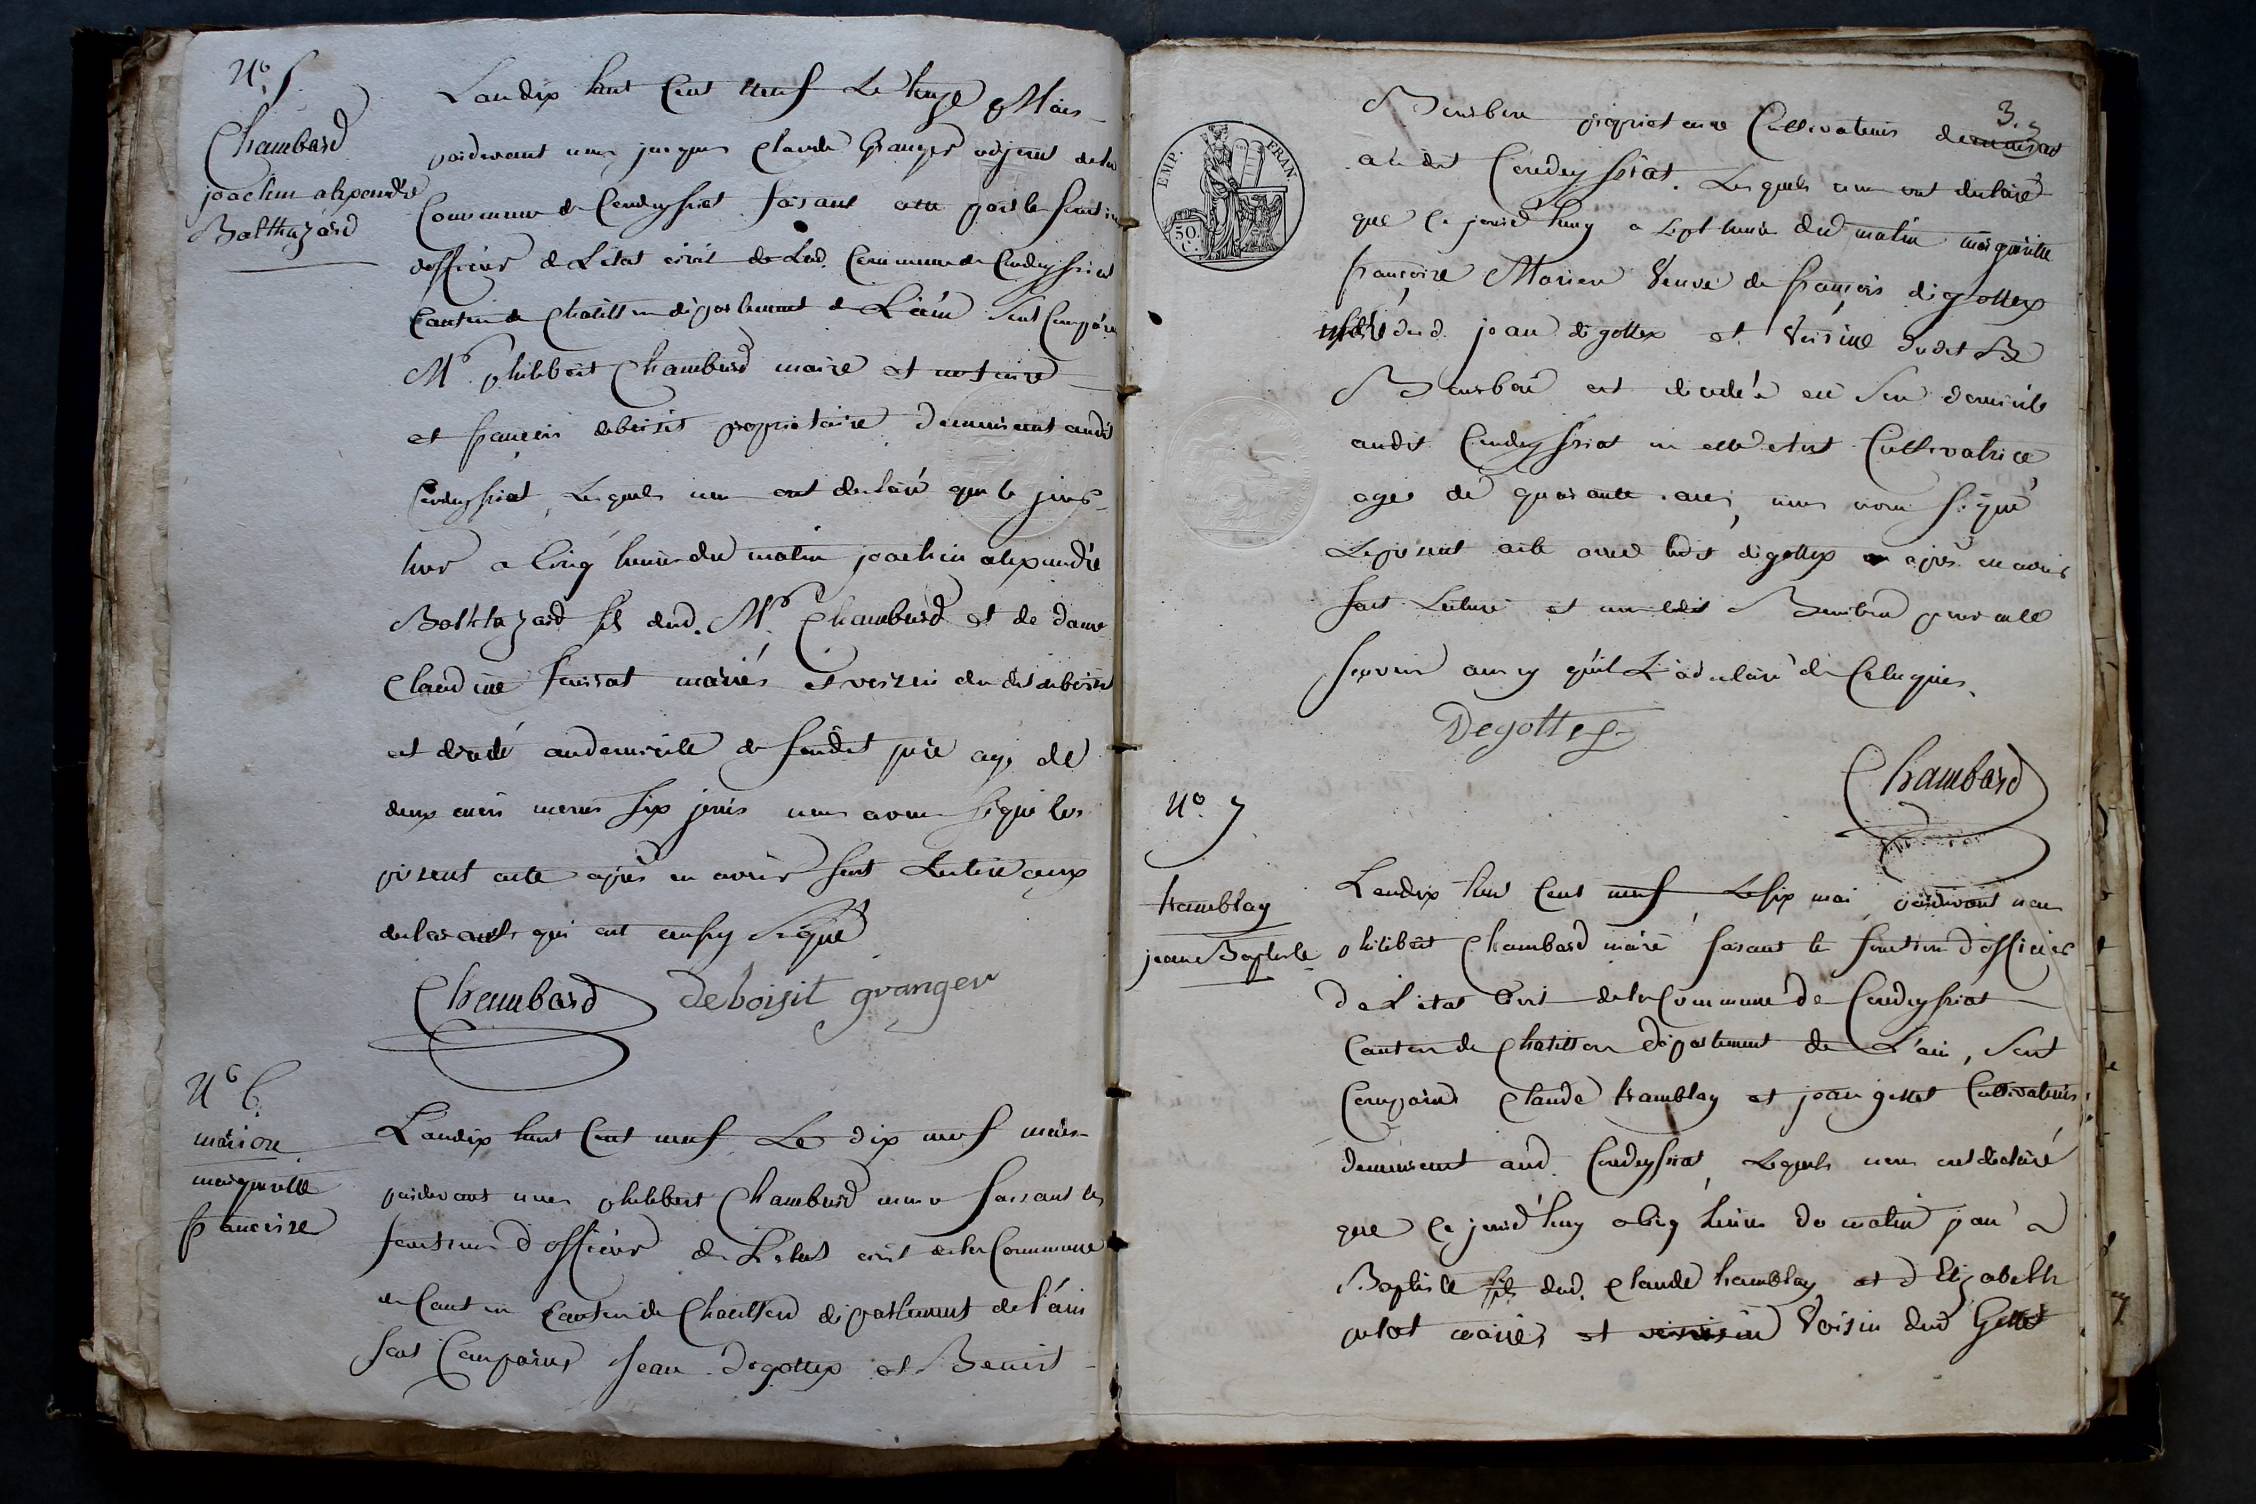 N.º 5.
Chambard
joachim alexandre
Balthazard
Landix huit Cent Neuf Le treize Mars
pardevant nous jacques Claude Granger adjoint de la
Commune de Condeyssiat faisant les fonctions
d'officier de L'état civil de Lad. Commune de Condeyssiat
Canton de Chatillon département de L'ain Sont Comparu
Mr. philibert Chambard maire et notaire
et françois deboisit propriétaire demeurant audit
Condeyssiat, Lesquels nous ont déclaré que le jour
hier a Cinq heures du matin joachim alexandre
Balthazard fils dud. Mr. Chambard et de dame
Claudine mariés et voisin du dit deboisit
est décédé au domicile de Sondit père agé de
deux mois moins Six jours nous avons Signé les
présent acte après en avoir fait Lecture aux
déclarants qui ont aussy Signé
Chambard deboisit granger
N.º 6.
marion
marguerite
françoise
Landix huit Cent neuf Le dix neuf mars
pardevant nous philibert Chambard maire faisant les
fonctions d'officier de L'état civil de la Commune
de Canton Canton de Chatillon département de l'ain
Sont Comparus Jean Degottex et Benoit
3.
EMP. FRAN.
50. C.
propriétaire Cultivateurs demeurant
audit Condeyssiat. Lesquels nous ont déclaré
que Ce jourd'huy a Sept heures du matin marguerite
françoise Marion Veuve de françois degottex
dud. jean degottex et Voisine dudit B
est décédée en Son domicile
audit Condeyssiat où elle étoit Cultivatrice
agée de quarante ans, nous avons Signé
Le présent acte avec ledit degottex après en avoir
fait Lecture et non ledit pour ne le
Sçavoir ainsy qu'il L'a déclaré de Ce Requis.
Degottex
Chambard
N.º 7.
tramblay
jean Baptiste
Landix huit Cent neuf, Le Six mai, pardevant nous
philibert Chambard maire faisant les fonctions d'officier
de L'état Civil de la Commune de Condeyssiat
Canton de Chatillon département de L'ain, Sont
Comparus Claude tramblay et jean gettet Cultivateurs
demeurant aud. Condeyssiat, Lesquels nous ont déclaré
que Ce jourd'huy a Cinq heures du matin jean
Baptiste fils dud. Claude tramblay et d'Elizabeth
putot mariés et Voisin dud Gettet